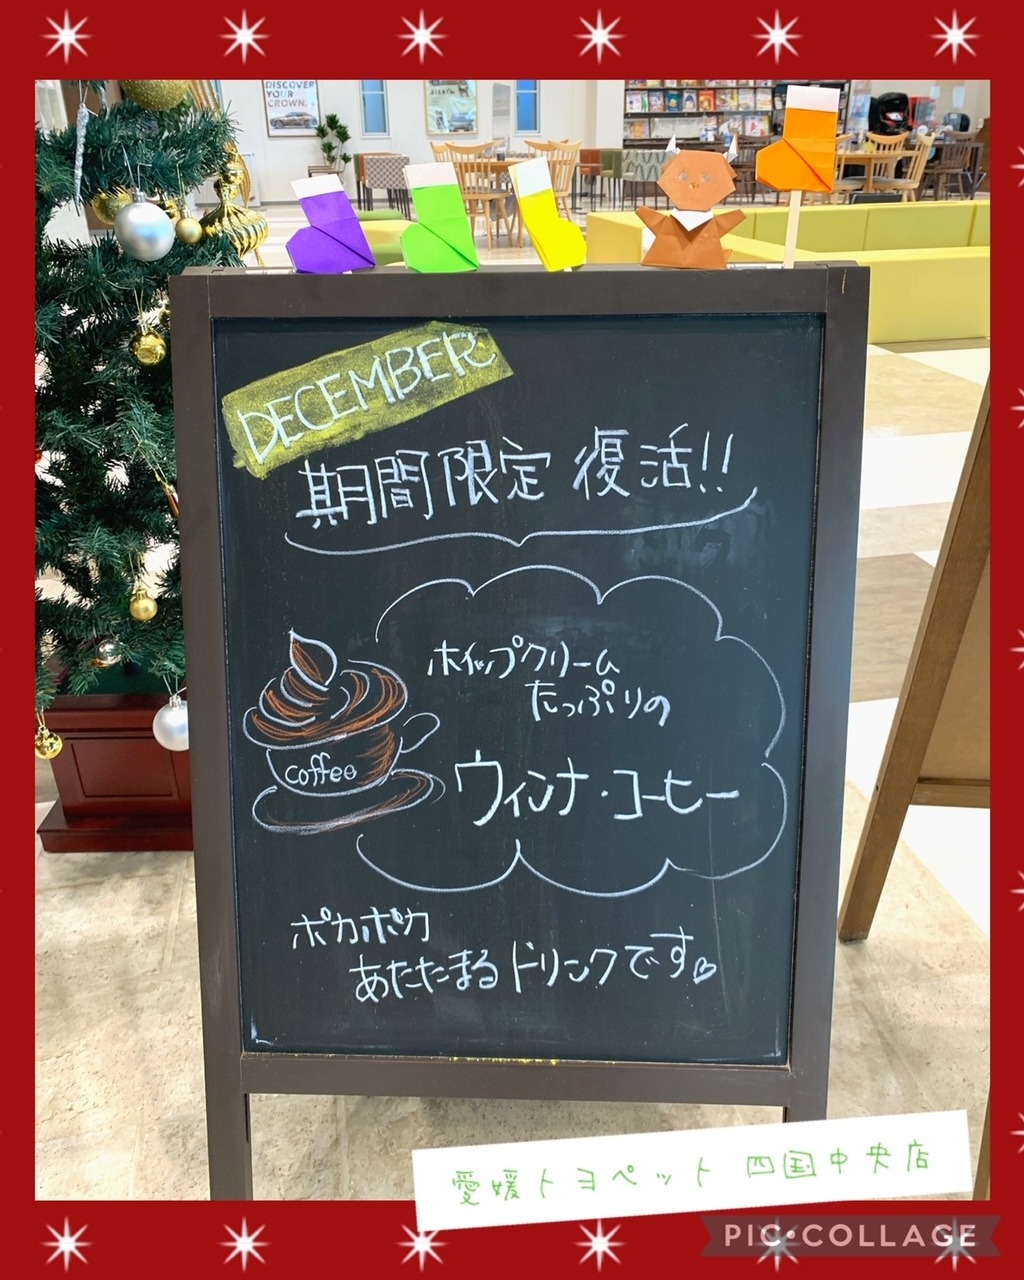 DISCOVER
YOUR
CROWN.
DECEMBER
期間限定 復活!!
ホイップクリーム
たっぷりの
coffee
ウィンナ・コーヒー
ポカポカ
あたたまるドリンクです♡
愛媛トヨペット 四国中央店
PIC•COLLAGE